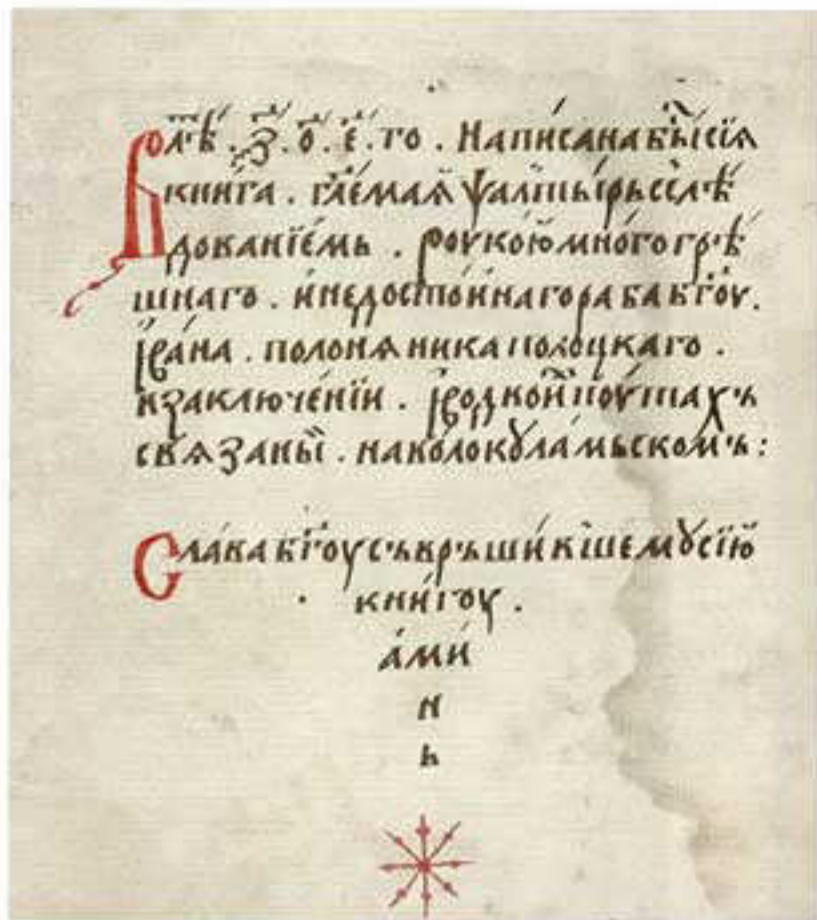 Во лѣ . ҂з҃ . о҃ . е҃ . го . Написана бы́ сїѧ
книга . гл҃емаѧ ѱалтырь сслѣ
дованїемь . роукою многогрѣ
шнаго . и недостоинаго раба бг҃оу .
Ївана . полонѧника полоцкаго .
в заключенїи . ї водкои поутахъ
свѧзаны̏ . на волокꙋламьскомъ :
Слава бг҃оу съвръшившемꙋ сїю
книгоу .
ами
н
ь